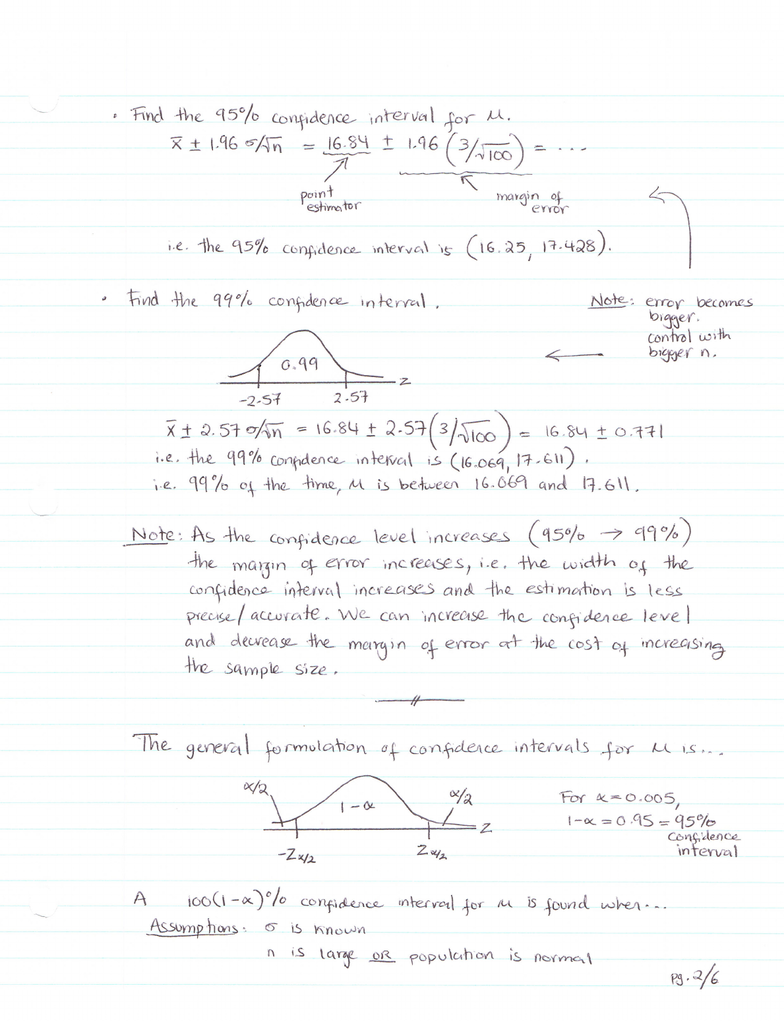 • Find the 95% confidence interval for μ.
x̄ ± 1.96 σ/√n = 16.84 ± 1.96 (3/√100) = ...
point estimator
margin of error
i.e. the 95% confidence interval is (16.25, 17.428).
• Find the 99% confidence interval.
Note: error becomes
bigger.
control with
bigger n.
0.99
z
-2.57 2.57
x̄ ± 2.57 σ/√n = 16.84 ± 2.57 (3/√100) = 16.84 ± 0.771
i.e. the 99% confidence interval is (16.069, 17.611).
i.e. 99% of the time, μ is between 16.069 and 17.611.
Note: As the confidence level increases (95% → 99%)
the margin of error increases, i.e. the width of the
confidence interval increases and the estimation is less
precise/accurate. We can increase the confidence level
and decrease the margin of error at the cost of increasing
the sample size.
The general formulation of confidence intervals for μ is...
α/2 1-α α/2
z
-Zα/2 Zα/2
For α=0.005,
1-α = 0.95 = 95%
confidence
interval
A 100(1-α)% confidence interval for μ is found when...
Assumptions: σ is known
n is large OR population is normal
pg. 2/6